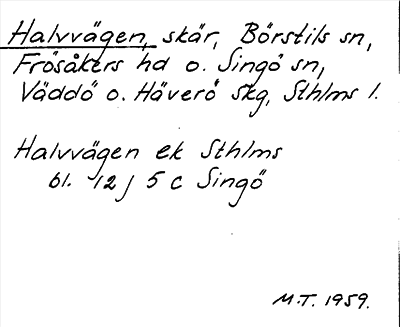 Halvvägen, skär, Börstils sn,
Frösåkers hd o. Singö sn,
Väddö o. Häverö skg, Sthlms l.
Halvvägen ek Sthlms
bl. 12 j 5 c Singö
M.T. 1959.